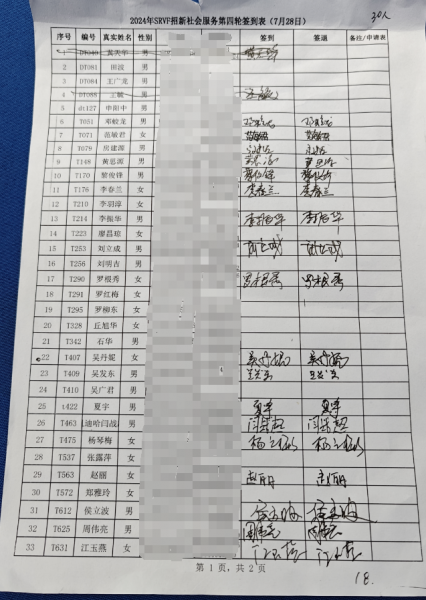 30人
2024年SRVF招新社会服务第四轮签到表（7月28日）
序号 编号 真实姓名 性别 签到 签退 备注/申请表
1 男
2 DT081 田波 男
3 DT084 王广龙 男
4 DT088 王敏
5 dt127 申阳中 男
6 T031 邓蛟龙 男 邓蛟龙 邓蛟龙
7 T071 范敏君 女
8 T079 房建源 男
9 T148 黄恩源 男
10 T170 黎俊锋 男
11 T176 李春兰 女 李春兰 李春兰
12 T210 李羽淳 女
13 T214 李振华 男 李振华 李振华
14 T223 廖昌琼 女
15 T253 刘立成 男 刘立成 刘立成
16 T256 刘明吉 男
17 T290 罗根秀 女 罗根秀 罗根秀
18 T291 罗红梅 女
19 T295 罗柳东 女
20 T328 丘旭华 女
21 T342 石华 男
22 T407 吴丹妮 女 吴丹妮 吴丹妮
23 T409 吴发东 男
24 T410 吴广君 男
25 t422 夏宇 男 夏宇 夏宇
26 T463 迪哈闫战 男
27 T475 杨琴梅 女
28 T537 张露萍 女
29 T563 赵丽 女 赵丽 赵丽
30 T572 郑雅玲 女
31 T612 侯立波 男
32 T625 周伟亮 男 周伟亮 周伟亮
33 T631 江玉燕 女 江玉燕 江玉燕
第 1 页，共 2 页
18.